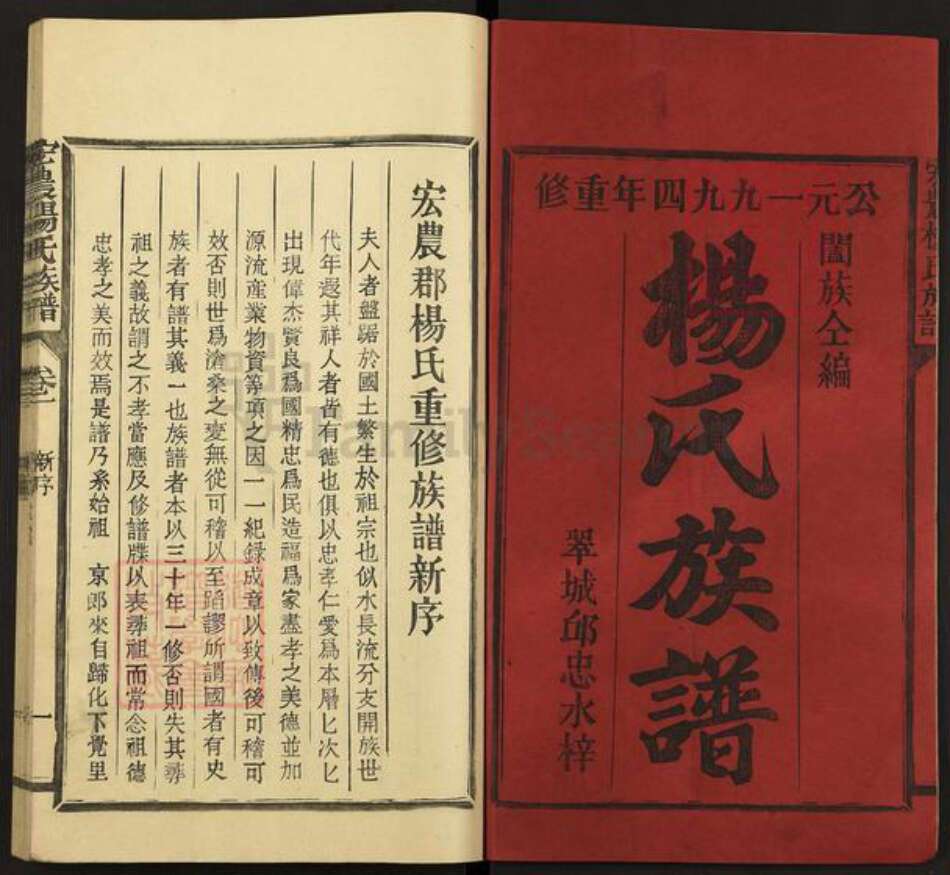 公元一九九四年重修
闔族仝編
楊氏族譜
翠城邱忠水梓
宏農郡楊氏重修族譜新序
夫人者盤踞於國土繁生於祖宗也似水長流分支開族世
代年遐其祥人者皆有德也俱以忠孝仁愛爲本層匕次匕
出現偉杰賢良爲國精忠爲民造福爲家盡孝之美德並加
源流産業物資等項之因一一紀録成章以致傳後可稽可
效否則世爲滄桑之变無從可稽以至蹈謬所謂國者有史
族者有譜其義一也族譜者本以三十年一修否則失其尋
祖之義故謂之不孝當應及修譜牒以表尋祖而常念祖德
忠孝之美而效焉是譜乃系始祖 京郎來自歸化下覺里
宏農楊氏族譜 卷一 新序 一